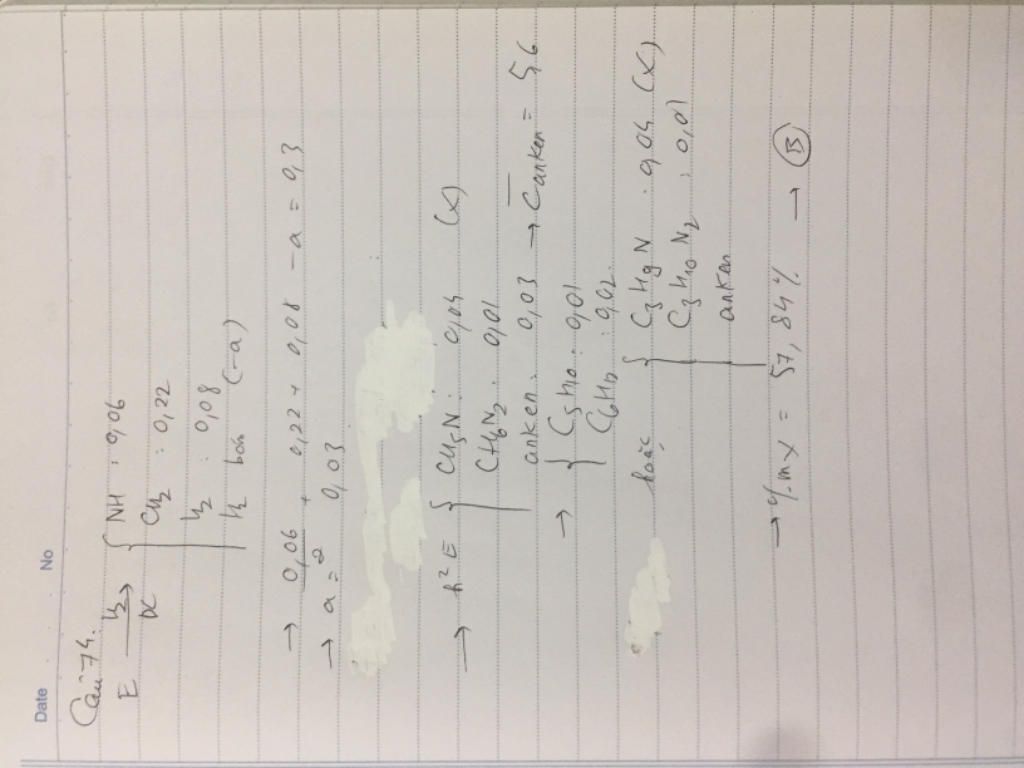 Date No
Câu 74.
E H2 ĐC { NH : 0,06
CH2 : 0,22
H2 : 0,08
H2 boớn (-a)
→ 0,06/2 + 0,22 + 0,08 - a = 0,3
→ a = 0,03
→ h² E { CH5N : 0,04 (X)
CH6N2 : 0,01
anken : 0,03 → C̅anken = 5,6
→ { C5H10 : 0,01
C6H12 : 0,02
hoặc { C3H9N : 0,04 (X)
C3H10N2 : 0,01
anken
→ %mX = 57,84% → B